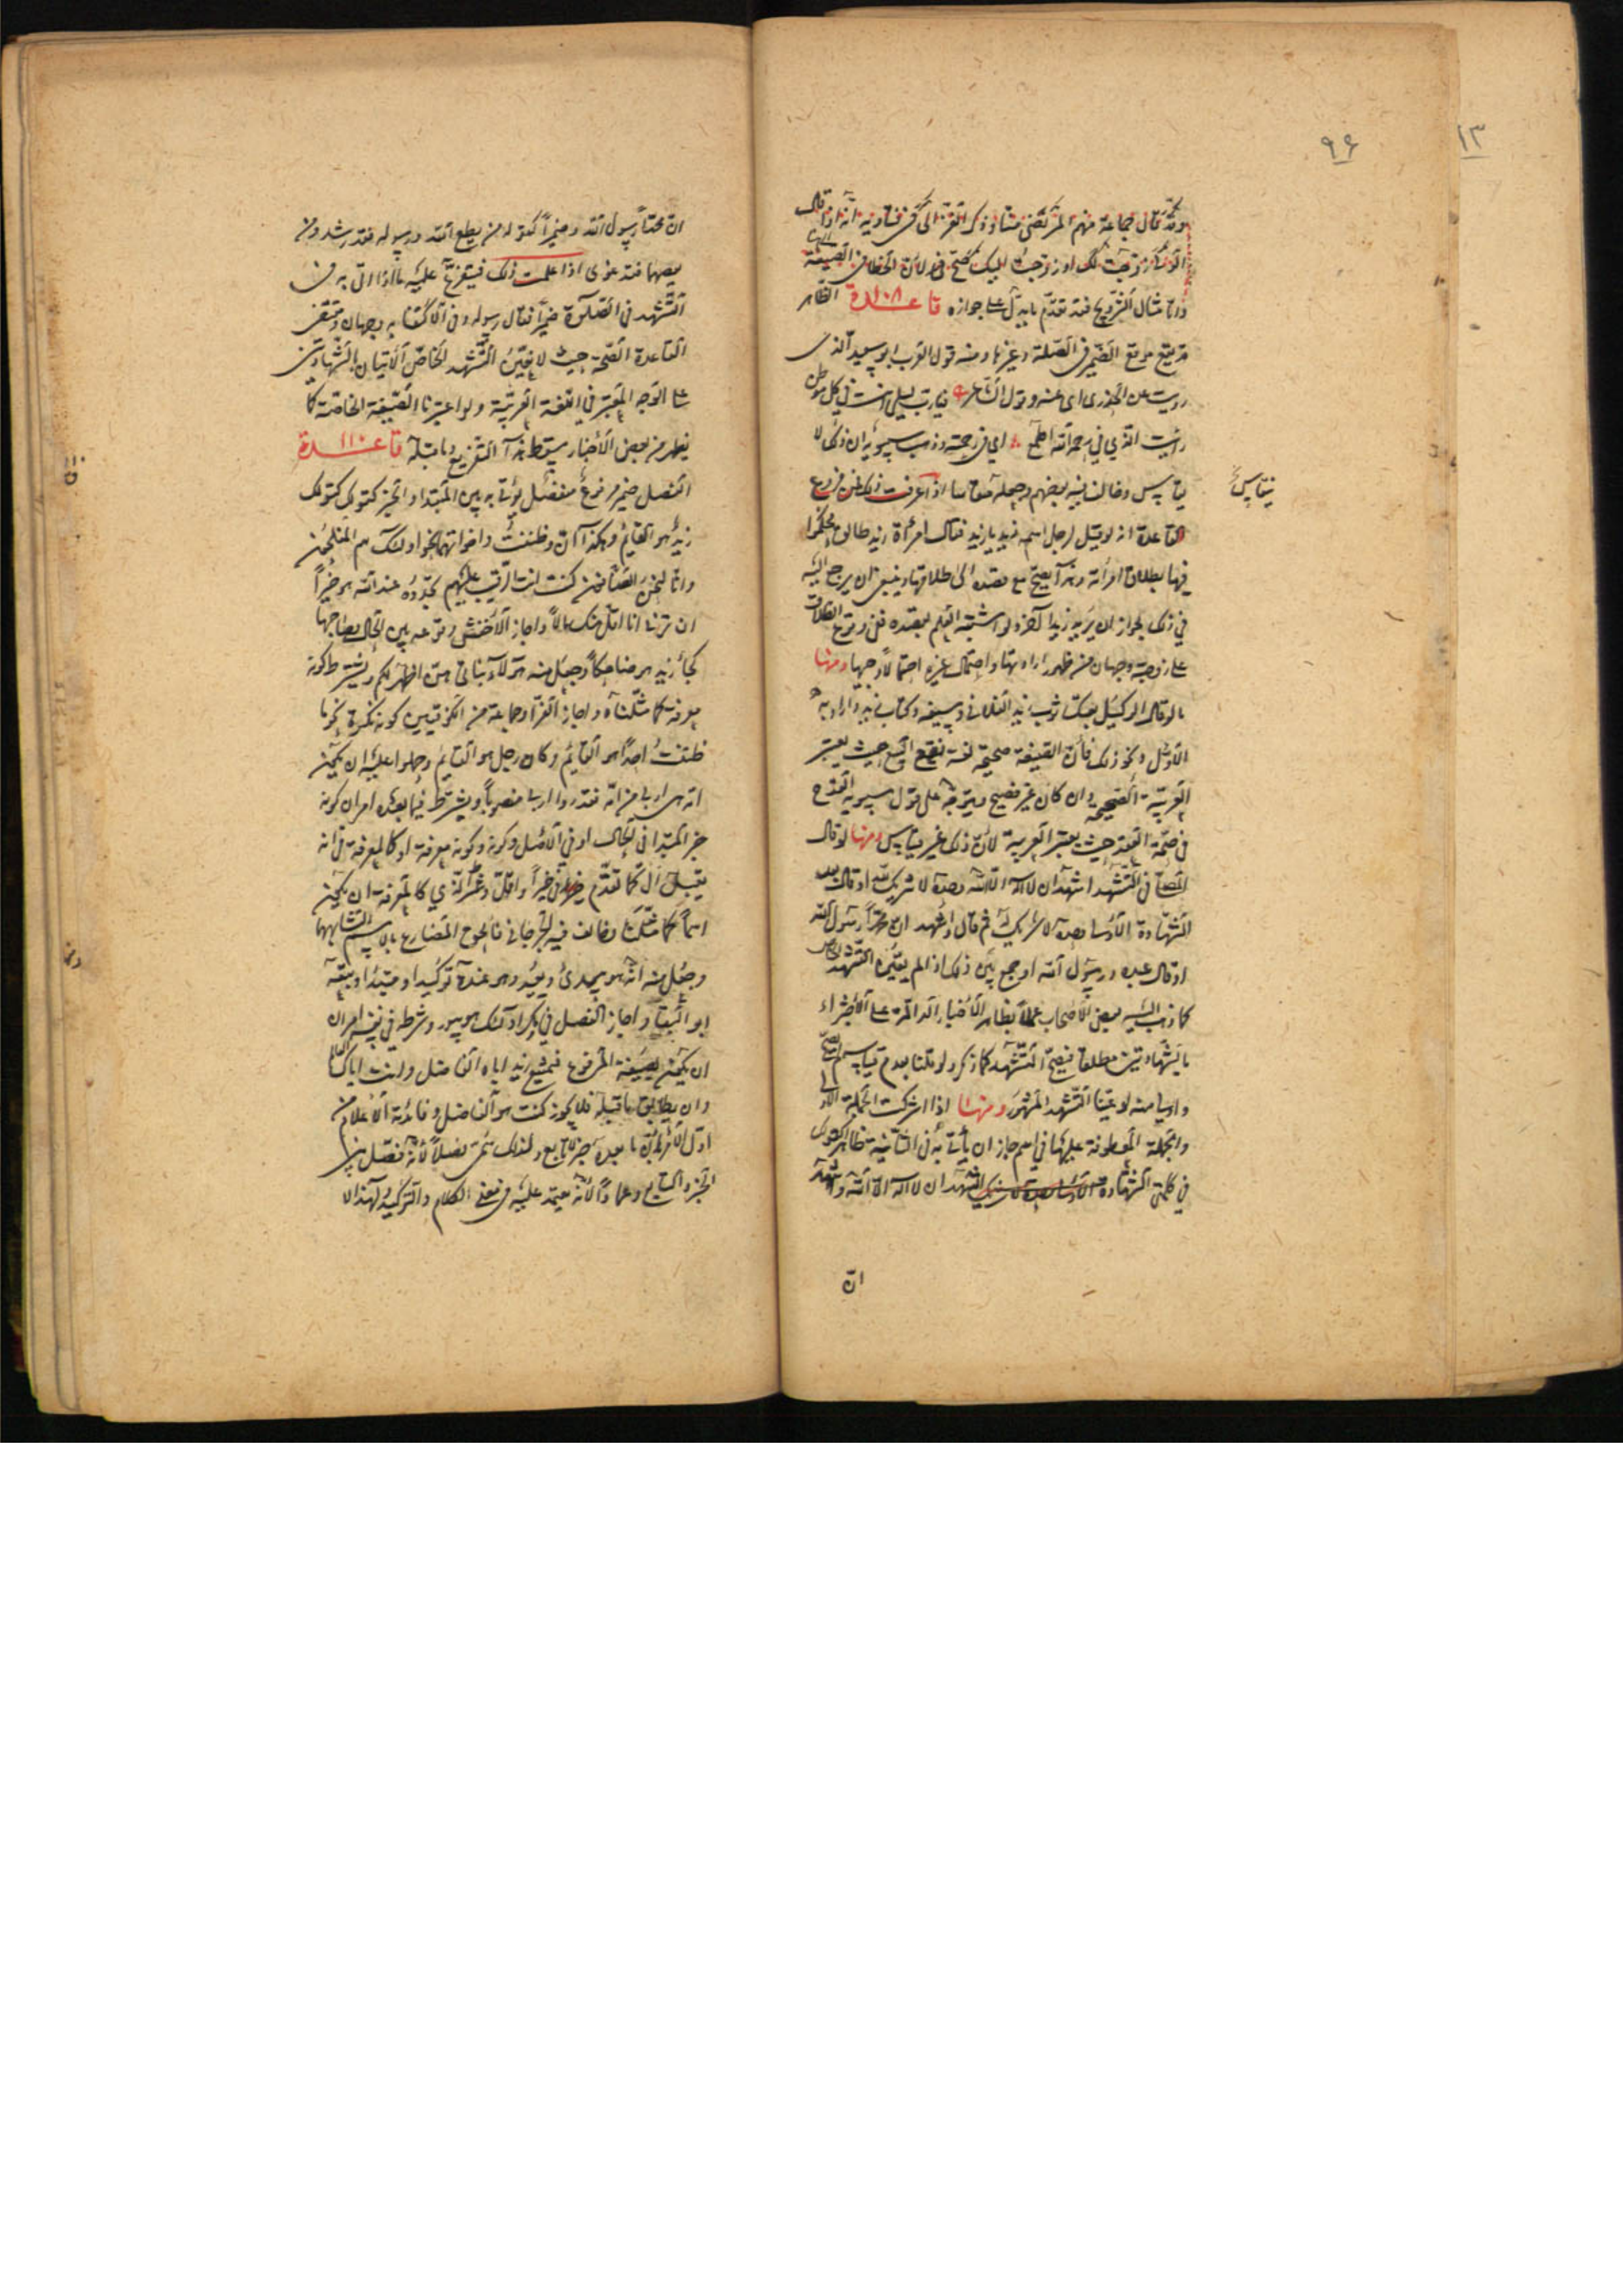 ٩٦
١٣
وقد قال جماعة منهم المرتضى وذكر الغزالى فى فتاويه انه اذا قال
زوجت لك او زوجت اليك صح لان الخطا فى الصيغة
واما مثال التزويج فقد تقدم ما يدل على جوازه قاعدة ١٠٨ الظاهر
قد يقع موقع الضمير فى الصلة وغيرها ومنه قول العرب ابو سعيد الذى
رويت عن الخدرى اى عنه وقول الشاعر فيارب ليلى انت فى كل موطن
وانت الذي في رحمة الله اطمع اي فى رحمته وذهب سيبويه ان ذلك لا
يقاس وخالف فيه بعضهم اذا عرفت ذلك فمن فروع
يقاس
القاعدة انه لو قيل لرجل اسمه زيد يا زيد فقال امرأة زيد طالق
فيها بطلاق امرأته وهذا يصح مع قصده الى طلاقها وينبغى ان يرجع اليه
في ذلك لجواز ان يريد زيدا آخر ولو اشتبه العلم بقصده ففى وقوع الطلاق
على زوجته وجهان من ظهور ارادتها واحتمال غيره احتمالا وجيها ومنها
ما لو قال الوكيل بعتك ثوب زيد الفلانى وسيفه وكتاب زيد واراد به
الاول ونحو ذلك فان الصيغة صحيحة لغة فيقع البيع حيث يعتبر
العربية الصحيحة وان كان غير فصيح ويتوجه على قول سيبويه القدح
فى صحة العقد حيث يعتبر العربية لان ذلك غير مقايس ومنها لو قال
المصلى فى التشهد اشهد ان لا اله الا الله وحده لا شريك له او قال بعد
الشهادة الاولى وحده لا شريك له ثم قال واشهد ان محمدا رسول الله
او قال عبده ورسول الله او جمع بين ذلك اذا لم يتعين التشهد الخاص
كما ذهب اليه بعض الاصحاب عملا بظاهر الاخبار الدالة على الاجتزاء
بالشهادتين مطلقا فيصح التشهد كما ذكر ولو قلنا بعدم قياسه لم يصح
واولى منه لو عينا التشهد المشهور ومنها اذا اشتركت الجملة الاولى
والجملة المعطوفة عليها في اسم جاز ان يأتى به فى الثانية ظاهرا كقولك
في كلمتى الشهادة اشهد ان لا اله الا الله واشهد
ان
ان محمدا رسول الله وضميرا كقوله من يطع الله ورسوله فقد رشد ومن
يعصهما فقد غوى اذا علمت ذلك فيتفرع عليه ما اذا اتى به فى
التشهد فى الصلوة ضميرا فقال رسوله وفى الاكتفا به وجهان ومقتضى
القاعدة الصحة حيث لا يتعين التشهد الخاص للاتيان بالشهادتين
على الوجه المعتبر في اللغة العربية ولو اعتبرنا الصيغة الخاصة كما
يظهر من بعض الاخبار سقط هذا التفريع وما قبله قاعدة ١١٠
الفصل ضمير مرفوع منفصل يؤتى به بين المبتدا والخبر كقولك
زيد هو القائم وهكذا كان وظننت واخواتهما نحو اولئك هم المفلحون
وانا لنحن الصافون كنت انت الرقيب عليهم تجدوه عند الله هو خيرا
ان ترنى انا اقل منك مالا واجاز الاخفش وقوعه بين الحال وصاحبها
كجاء زيد هو ضاحكا وجعل منه هولاء بناتى هن اطهر لكم ويشترط كونه
معرفة كما مثلناه واجاز الفرا وجماعة من الكوفيين كونه نكرة نحو ما
ظننت احدا هو القائم وكان رجل هو القائم وحملوا عليه ان تكون
امة هى اربى من امة فقدروا اربى منصوبا ويشترط فيما بعده امران كونه
خبر المبتدا فى الحال او في الاصل وكونه معرفة او كالمعرفة فى انه
لا يقبل ال كما تقدم فى خيرا واقل وشرط الذي كالمعرفة ان يكون
اسما كما مثلنا وخالف فيه الجرجانى فالحق المضارع بالاسم لتشابههما
وجعل منه انه هو يبدئ ويعيد وهو عنده توكيد او مبتدا وتبعه
ابو البقا واجاز الفصل في ومكر اولئك هو يبور وشرطه فى نفسه امران
ان يكون بصيغة المرفوع فيمتنع زيد اياه الفاضل وانت اياك العالم
وان يطابق ما قبله فلا يجوز كنت هو الفاضل وفائدته الاعلام من
اول الامر بان ما بعده خبر لا تابع ولذلك سمى فصلا لانه فصل بين
الخبر والتابع وعمادا لانه يعتمد عليه فى معنى الكلام والتوكيد لهذا لا